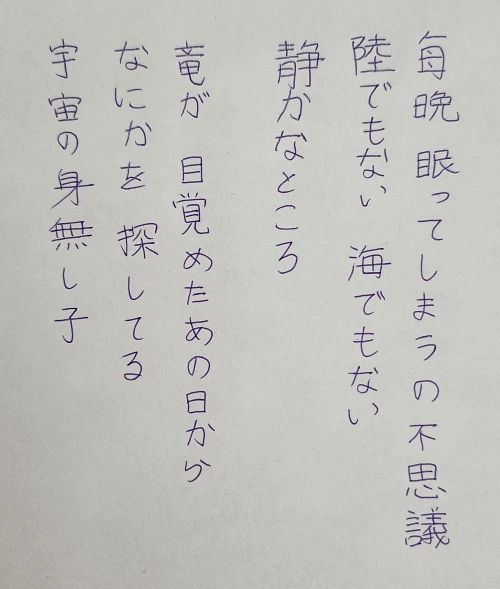 毎晩 眠ってしまうの不思議
陸でもない 海でもない
静かなところ
竜が 目覚めたあの日から
なにかを 探してる
宇宙の身無し子